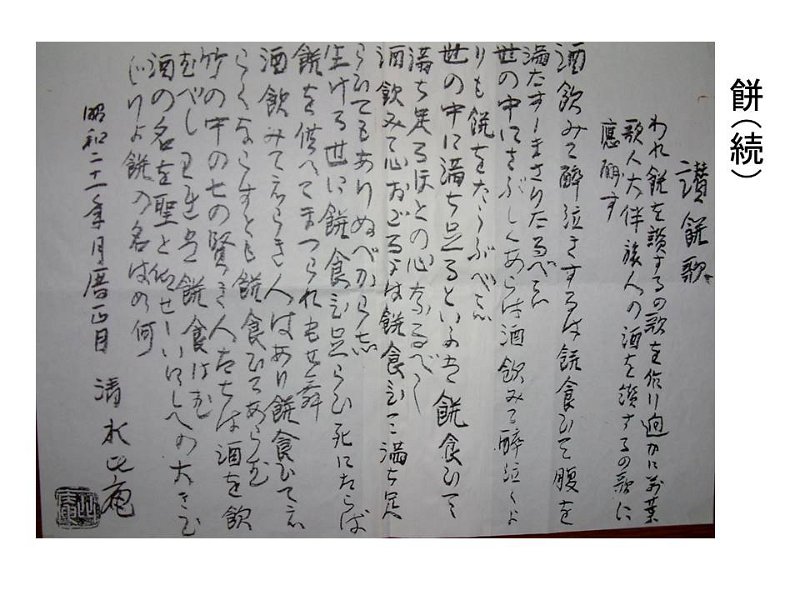 餅(続)
讃餅歌
われ餅を讃するの歌を作り迥かに萬葉
歌人大伴旅人の酒を讃するの歌に
應酬す
酒飲みて醉泣きするは餅食ひて腹を
満たすにまさりたるべし
世の中にさぶしくあらば酒飲みて醉泣くよ
りも餅をたうぶべし
世の中に満ち足るといふは餅食ひて
満ち足るほどの心なるべし
酒飲みて心おごるよは餅食ひて満ち足
らひてもありぬべからし
生ける世に餅食ひ足らひ死にたらば
餅を供へてまつられむ
酒飲みてえらき人はあり餅食ひてえ
らくならずとも餅食ひてあらむ
竹の中の七の賢き人たちは酒を飲
むべしわれは餅食はむ
酒の名を聖と仰せしいにしへの大きひ
じりよ餅の名はの何
昭和二十一年月暦正月 清水比庵